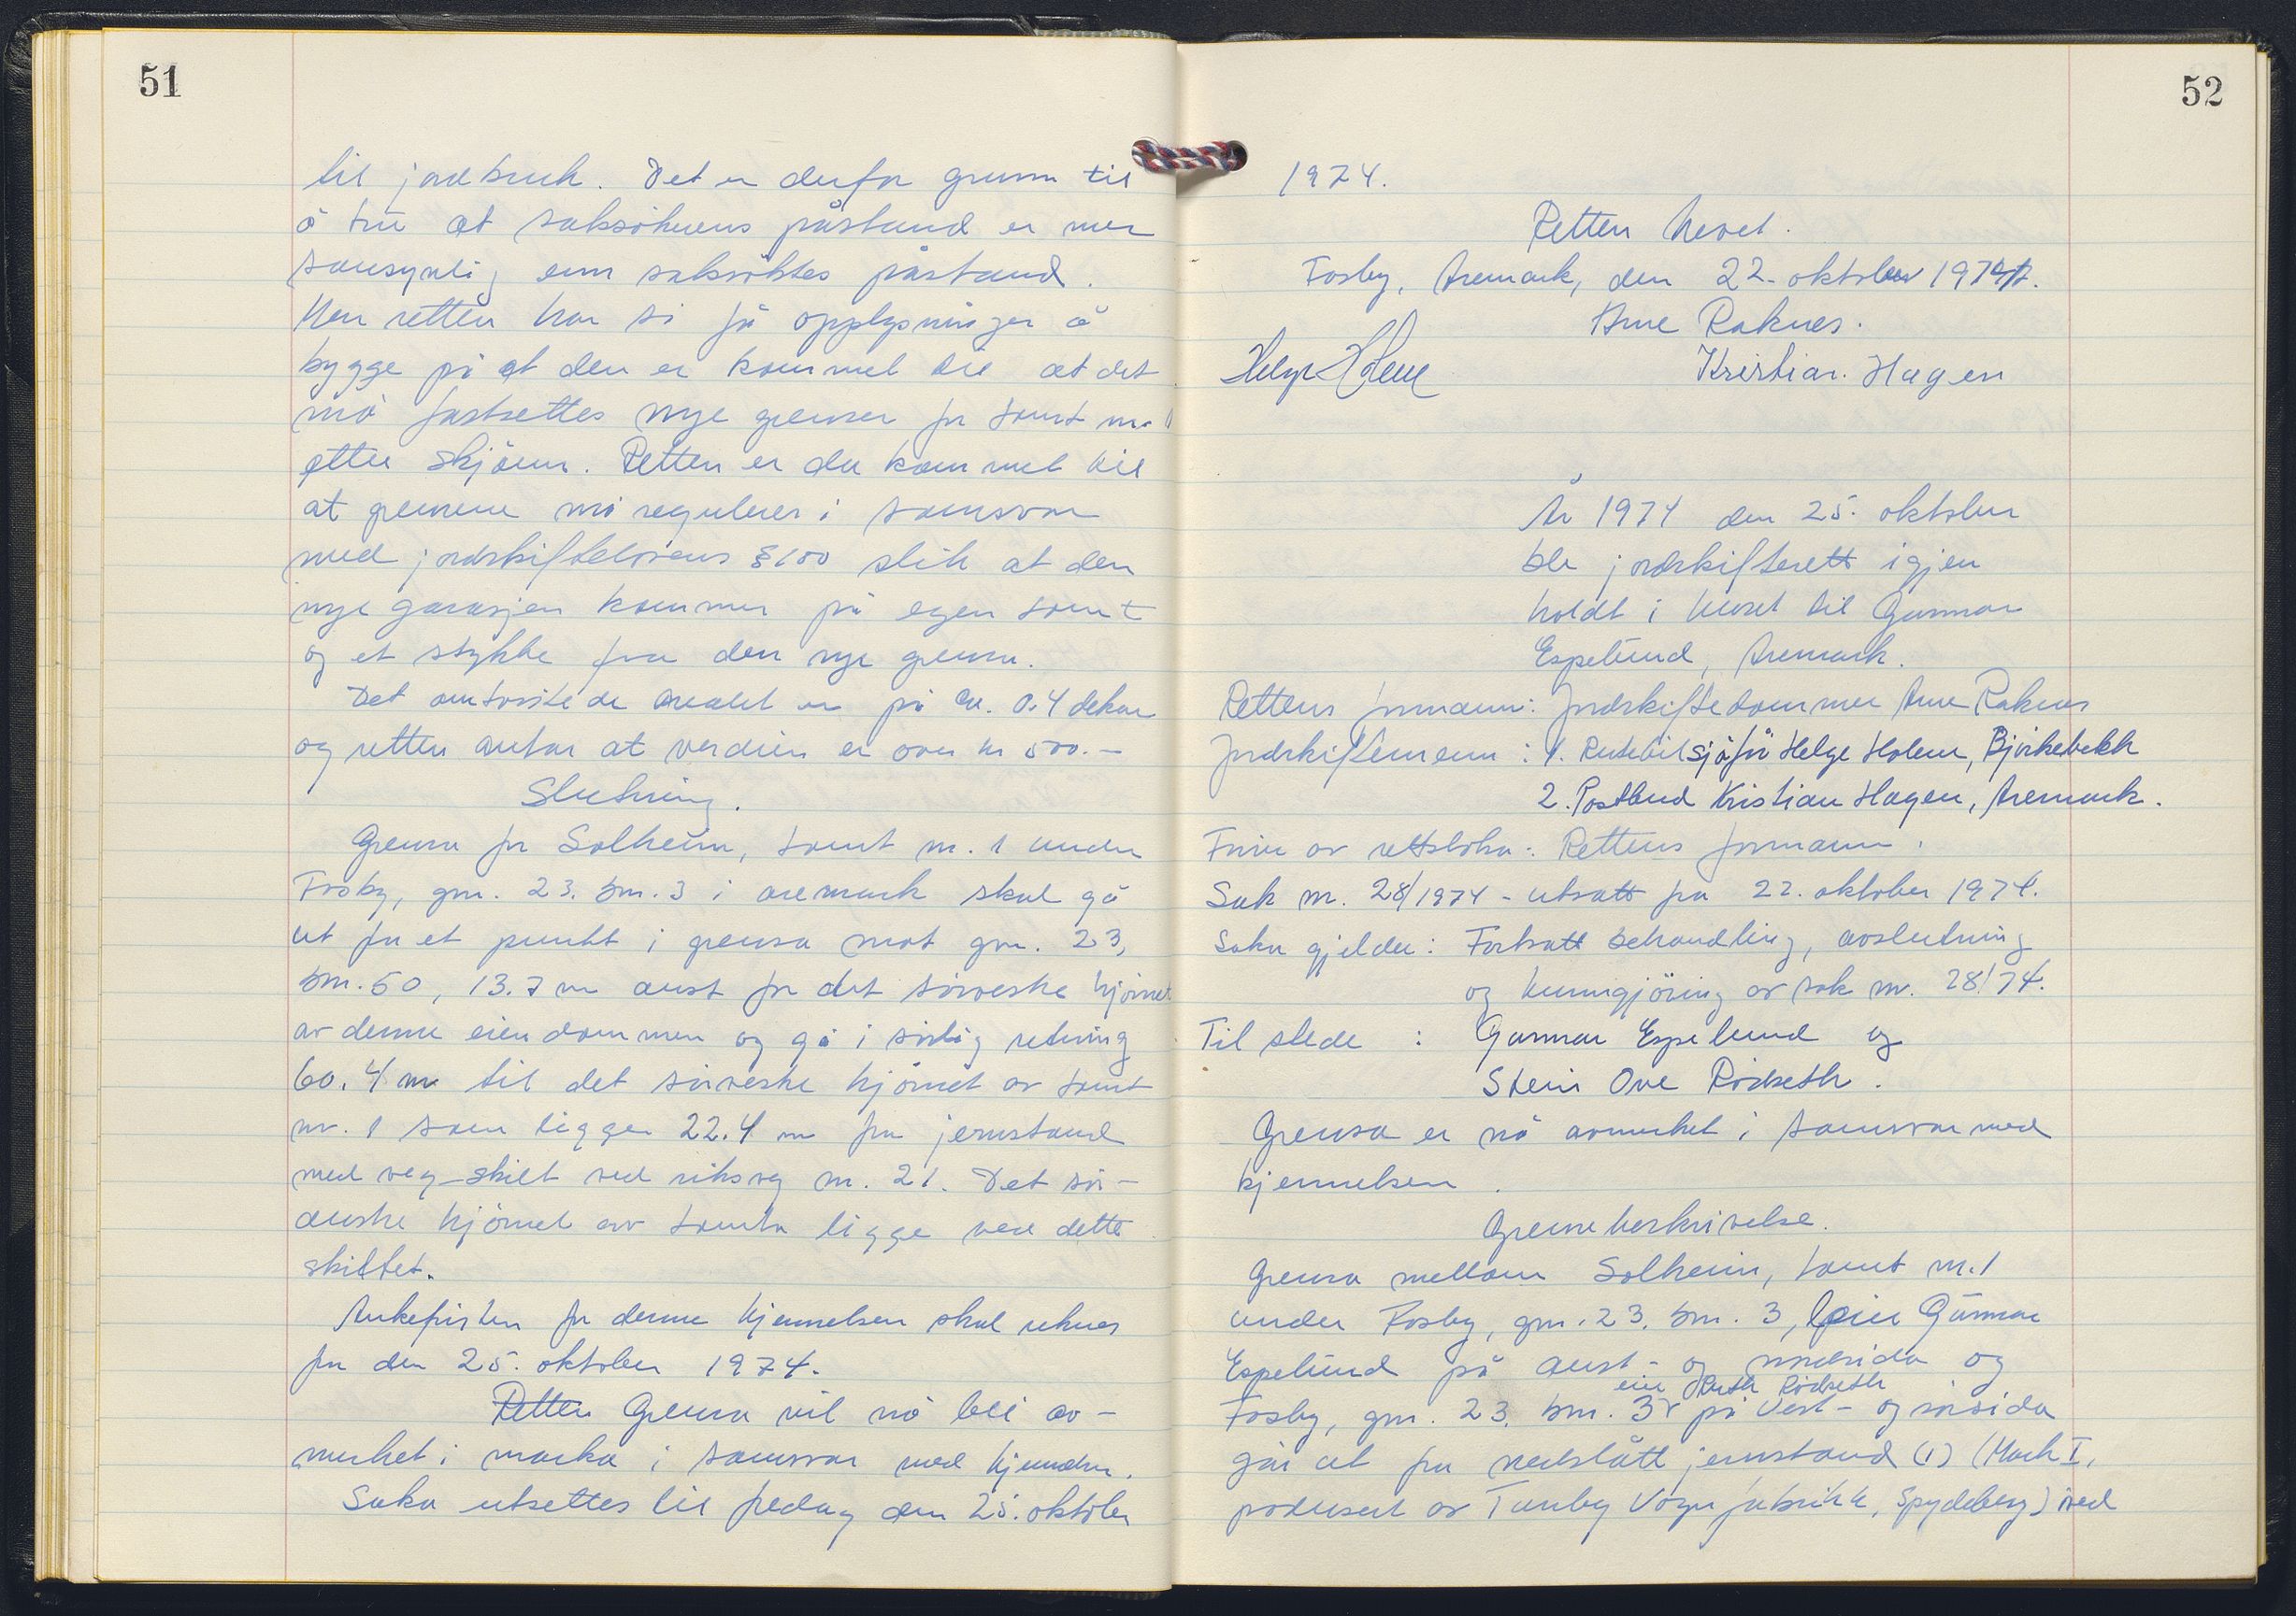 51
til jordbruk. Det er derfor grunn til
å tru at saksökerens påstand er mer
sansynlig enn saksöktes påstand.
Men retten har så få opplysninger å
bygge på at den er kommet til at det
må fastsettes nye grenser for tomt nr. 1
etter skjönn. Retten er da kommet til
at grensene må reguleres i samsvar
med jordskiftelovens § 100 slik at den
nye garasjen kommer på egen tomt
og et stykke fra den nye grensa.
Det omtvistede arealet er på ca. 0.4 dekar
og retten antar at verdien er over kr 500.-
Slutning.
Grensa for Solheim, tomt nr. 1 under
Fosby, gnr. 23. bnr. 3 i Aremark skal gå
ut fra et punkt i grensa mot gnr. 23,
bnr. 50, 13.7 m aust for det sörvestre hjörnet
av denne eiendommen og gå i sörlig retning
60.4 m til det sörvestre hjörnet av tomt
nr. 1 som ligger 22.4 m fra jernstand
med veg-skilt ved riksveg nr. 21. Det sör-
austre hjörnet av tomta ligger ved dette
skiltet.
Ankefristen for denne kjennelsen skal reknes
fra den 25. oktober 1974.
Retten Grensa vil nå bli av-
merket i marka i samsvar med kjennelsen.
Saka utsettes til fredag den 25. oktober
52
1974.
Retten hevet.
Fosby, Aremark, den 22. oktober 1974.
Arne Raknes.
Helge Holene
Kristian Hagen
År 1974 den 25. oktober
ble jordskifterett igjen
holdt i huset til Gunnar
Espelund, Aremark.
Rettens formann: Jordskiftedommer Arne Raknes
Jordskiftemenn: 1. Rutebilsjåför Helge Holene, Bjørkebekk
2. Postbud Kristian Hagen, Aremark.
Förer av rettsboka: Rettens formann.
Sak nr. 28/1974 - utsatt fra 22. oktober 1974.
Saka gjelder: Fortsatt behandling, avslutning
og kunngjöring av sak nr. 28/74.
Til stede: Gunnar Espelund og
Stein Ove Rödseth.
Grensa er nå avmerket i samsvar med
kjennelsen.
Grensebeskrivelse.
Grensa mellom Solheim, tomt nr. 1
under Fosby, gnr. 23. bnr. 3, eier Gunnar
Espelund på aust- og nordsida og
eier Ruth Rödseth
Fosby, gnr. 23. bnr. 3 på vest- og sörsida
går ut fra nedslått jernstand (1) (Merk I,
produsert av Tanby Vognfabrikk, Spydeberg) ved